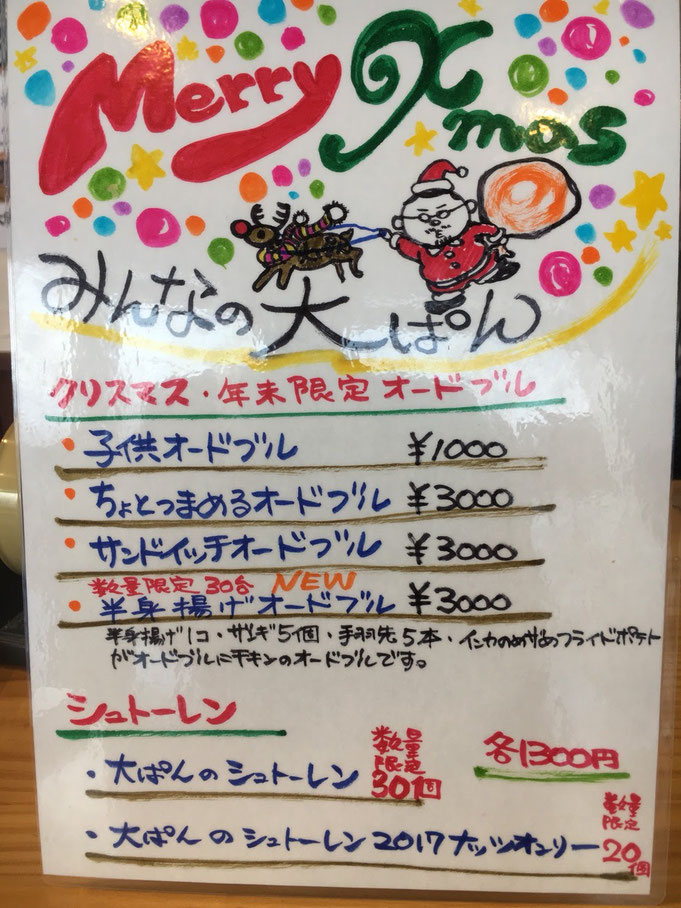 Merry Xmas
みんなの大ぱん
クリスマス・年末限定オードブル
・子供オードブル ¥1000
・ちょとつまめるオードブル ¥3000
・サンドイッチオードブル ¥3000
数量限定30台 NEW
・半身揚げオードブル ¥3000
半身揚げ1コ・ザンギ5個・手羽先5本・インカのめざめフライドポテト
がオードブルにチキンのオードブルです。
シュトーレン
各1300円
・大ぱんのシュトーレン 数量限定30個
・大ぱんのシュトーレン2017ナッツオンリー 数量限定20個